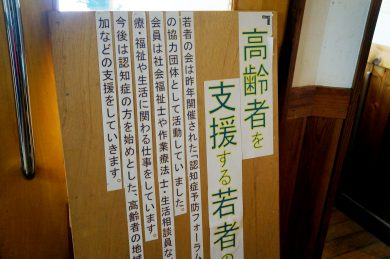 『高齢者を
支援する若者の
若者の会は昨年開催された「認知症予防フォーラム
の協力団体として活動していました。
会員は社会福祉士や作業療法士・生活相談員な
療・福祉や生活に関わる仕事をしています。
今後は認知症の方を始めとした、高齢者の地域
加などの支援をしていきます。